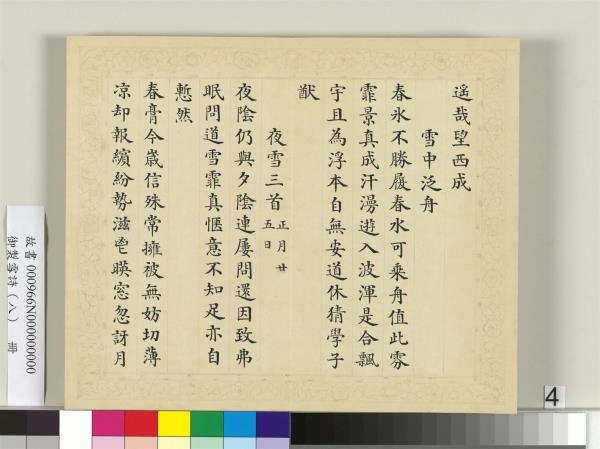 遙哉望西成
雪中泛舟
春氷不勝履春水可乗舟值此雰
霏景真成汗漫遊入波渾是合飄
宇且為浮本自無安道休猜學子
猷
夜雪三首 正月廿五日
夜陰仍與夕陰連屢問還因致弗
眠問道雪霏真愜意不知足亦自
慙然
春膏今歲信殊常擁被無妨切薄
凉却報繽紛勢滋邑暎窓忽訝月
故書 000966N000000000
御製雪詩(八) 冊
4